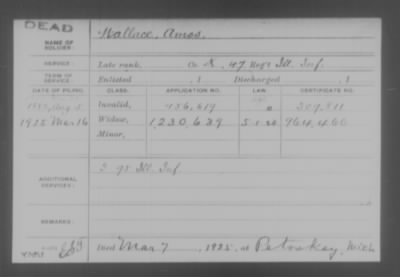 DEAD
NAME OF SOLDIER: Wallace, Amos.
SERVICE: Late rank, Co. K, 47 Reg't Ill. Inf.
TERM OF SERVICE: Enlisted , 1 Discharged , 1
DATE OF FILING. CLASS. APPLICATION NO. LAW. CERTIFICATE NO.
Aug 5 Invalid, 456,619 309,811
1925 Mar 16 Widow, 1,230,639 5-1-20 964,460
Minor,
ADDITIONAL SERVICES: I 75 Ill. Inf.
REMARKS:
Died Mar 7, 1925, at Petoskey, Mich